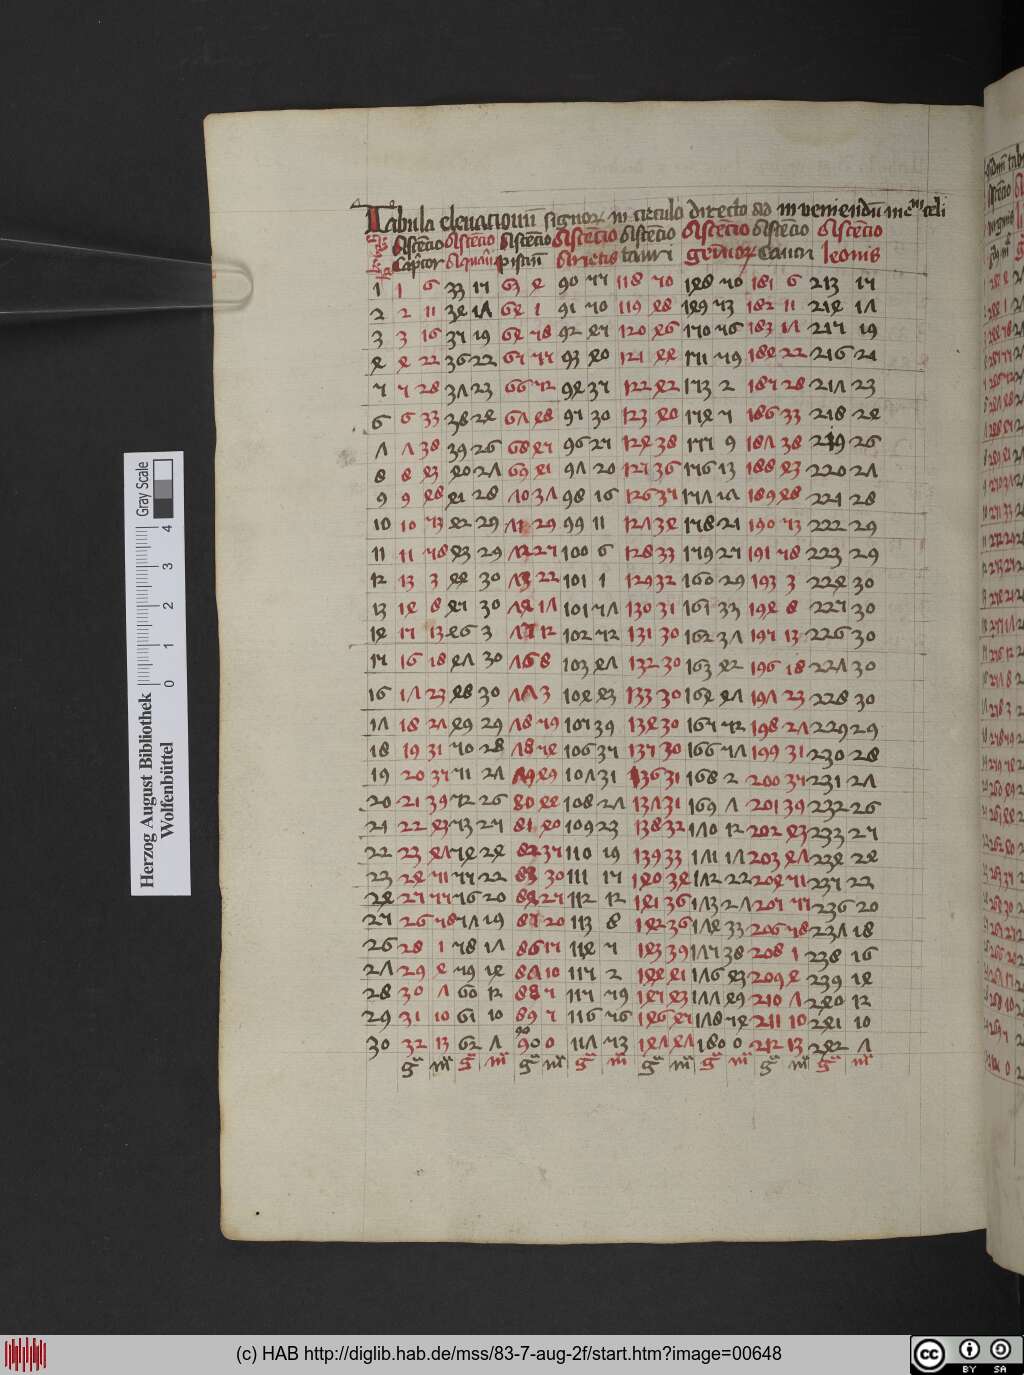 Tabula eleuacionū signoꝝ in circulo directo ad inueniendū me celi
Ascēcio Ascēcio Ascēcio Ascēcio Ascēcio Ascēcio Ascēcio Ascēcio
Capͥcor Aquarij pisciū Arietis tauri gemīoꝝ Cancri leonis
1 1 6 33 15 63 4 90 55 118 50 148 50 181 6 213 15
2 2 11 34 17 64 1 91 50 119 48 149 53 182 11 214 17
3 3 16 35 19 64 58 92 45 120 46 150 56 183 17 215 19
4 4 22 36 22 65 55 93 40 121 44 151 59 184 22 216 21
5 5 28 37 23 66 52 94 35 122 42 153 2 185 28 217 23
6 6 33 38 24 67 48 95 30 123 40 154 5 186 33 218 24
7 7 38 39 26 68 45 96 25 124 38 155 9 187 38 219 26
8 8 43 40 27 69 41 97 20 125 36 156 13 188 43 220 27
9 9 48 41 28 70 37 98 16 126 35 157 17 189 48 221 28
10 10 53 42 29 71 29 99 11 127 34 158 21 190 53 222 29
11 11 58 43 29 72 25 100 6 128 33 159 25 191 58 223 29
12 13 3 44 30 73 22 101 1 129 32 160 29 193 3 224 30
13 14 8 45 30 74 17 101 57 130 31 161 33 194 8 225 30
14 15 13 46 3 75 12 102 52 131 30 162 37 195 13 226 30
15 16 18 47 30 76 8 103 47 132 30 163 42 196 18 227 30
16 17 23 48 30 77 3 104 43 133 30 164 47 197 23 228 30
17 18 27 49 29 78 59 105 39 134 30 165 52 198 27 229 29
18 19 31 50 28 78 54 106 35 135 30 166 57 199 31 230 28
19 20 35 51 27 79 49 107 31 136 31 168 2 200 35 231 27
20 21 39 52 26 80 44 108 27 137 31 169 7 201 39 232 26
21 22 43 53 25 81 40 109 23 138 32 170 12 202 43 233 25
22 23 47 54 24 82 35 110 19 139 33 171 17 203 47 234 24
23 24 51 55 22 83 30 111 15 140 34 172 22 204 51 235 22
24 25 55 56 20 84 25 112 12 141 36 173 27 205 55 236 20
25 26 58 57 19 85 20 113 8 142 36 174 33 206 58 237 18
26 28 1 58 17 86 15 114 5 143 39 175 38 208 1 238 16
27 29 4 59 14 87 10 115 2 144 41 176 43 209 4 239 14
28 30 7 60 12 88 5 115 59 145 43 177 49 210 7 240 12
29 31 10 61 10 89 5 116 56 146 45 178 54 211 10 241 10
90
30 32 13 62 7 90 0 117 53 147 47 180 0 212 13 242 7
gͣ mͣ gͣ mͣ gͣ mͣ gͣ mͣ gͣ mͣ gͣ mͣ gͣ mͣ gͣ mͣ
Herzog August Bibliothek
Wolfenbüttel
0 1 2 3 4
Gray Scale
(c) HAB http://diglib.hab.de/mss/83-7-aug-2f/start.htm?image=00648
cc BY SA